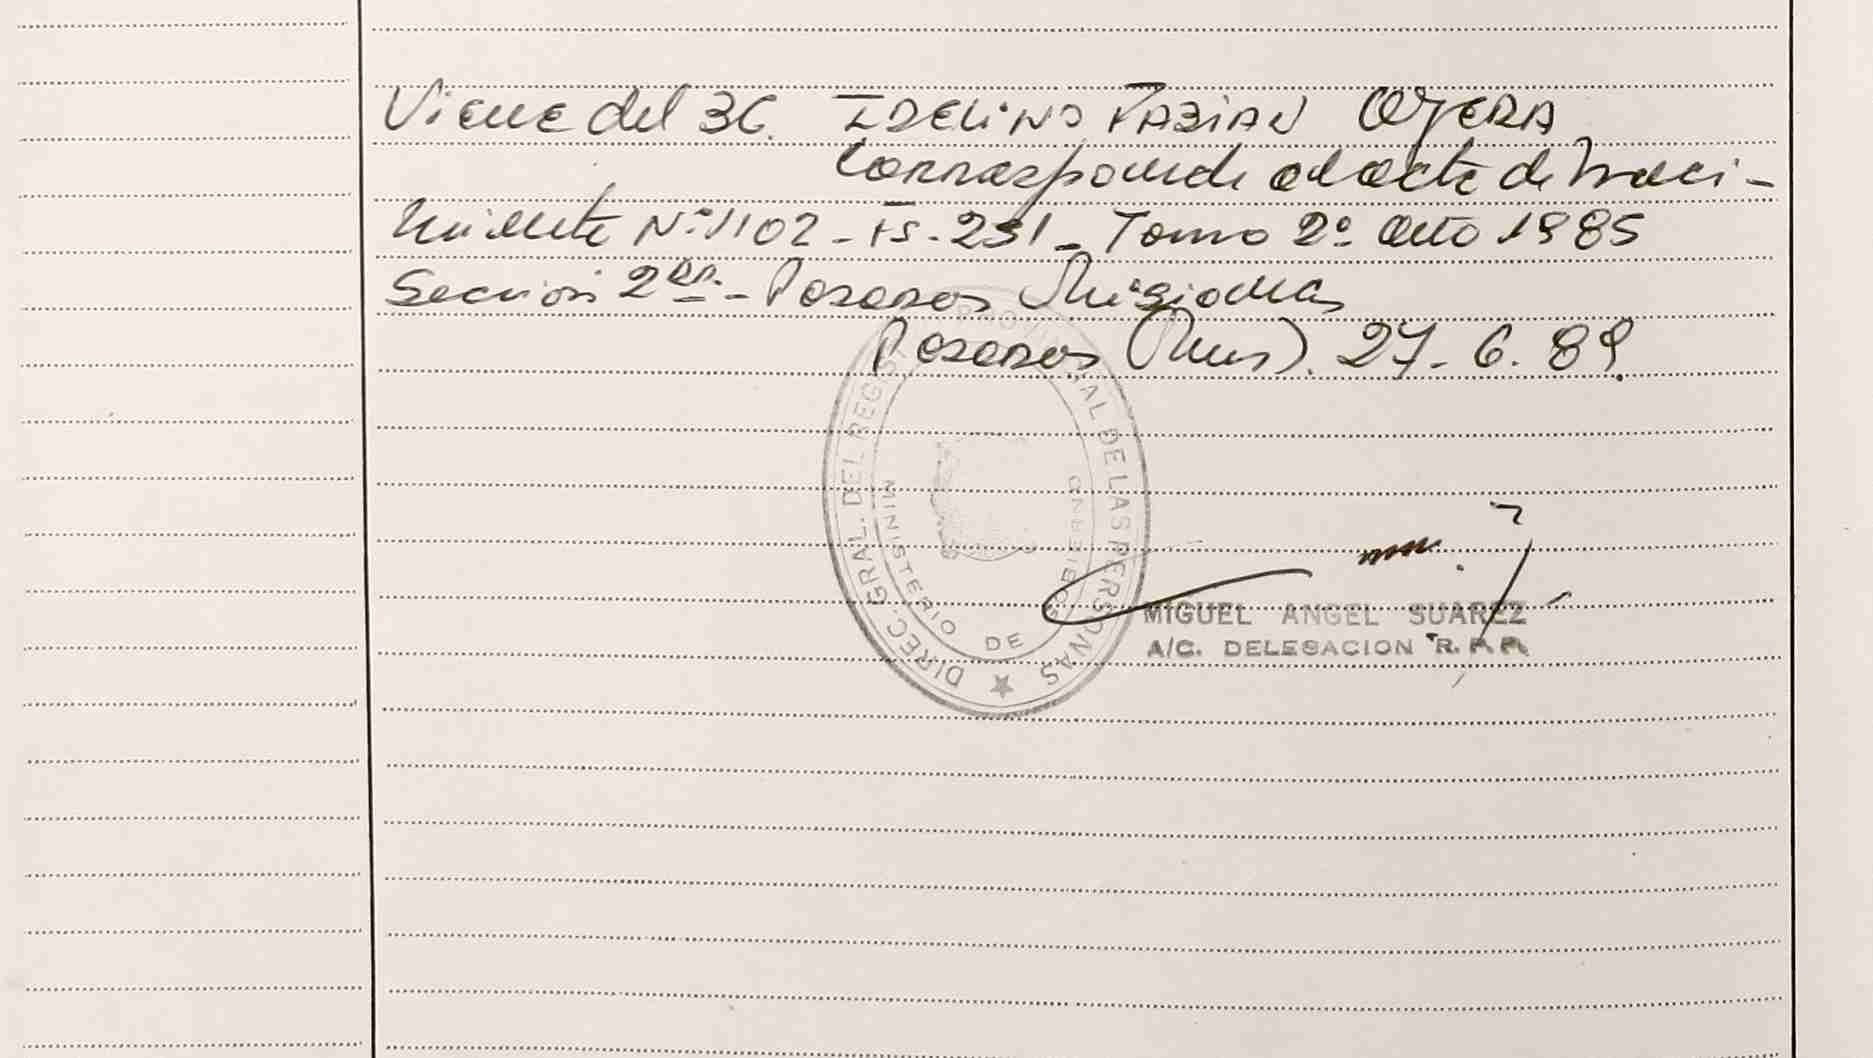 Viene del 36. IDELINO FABIAN OJEDA
Corresponde al acta de Naci-
miento Nº 1102 - Fs. 231 - Tomo 2º Año 1985
Seccion 2da. - Posadas Misiones
Posadas (Mnes). 27. 6. 89.
DIREC. GRAL. DEL REGISTRO PROVINCIAL DE LAS PERSONAS
MINISTERIO DE GOBIERNO
MIGUEL ANGEL SUAREZ
A/C. DELEGACION R. P. P.